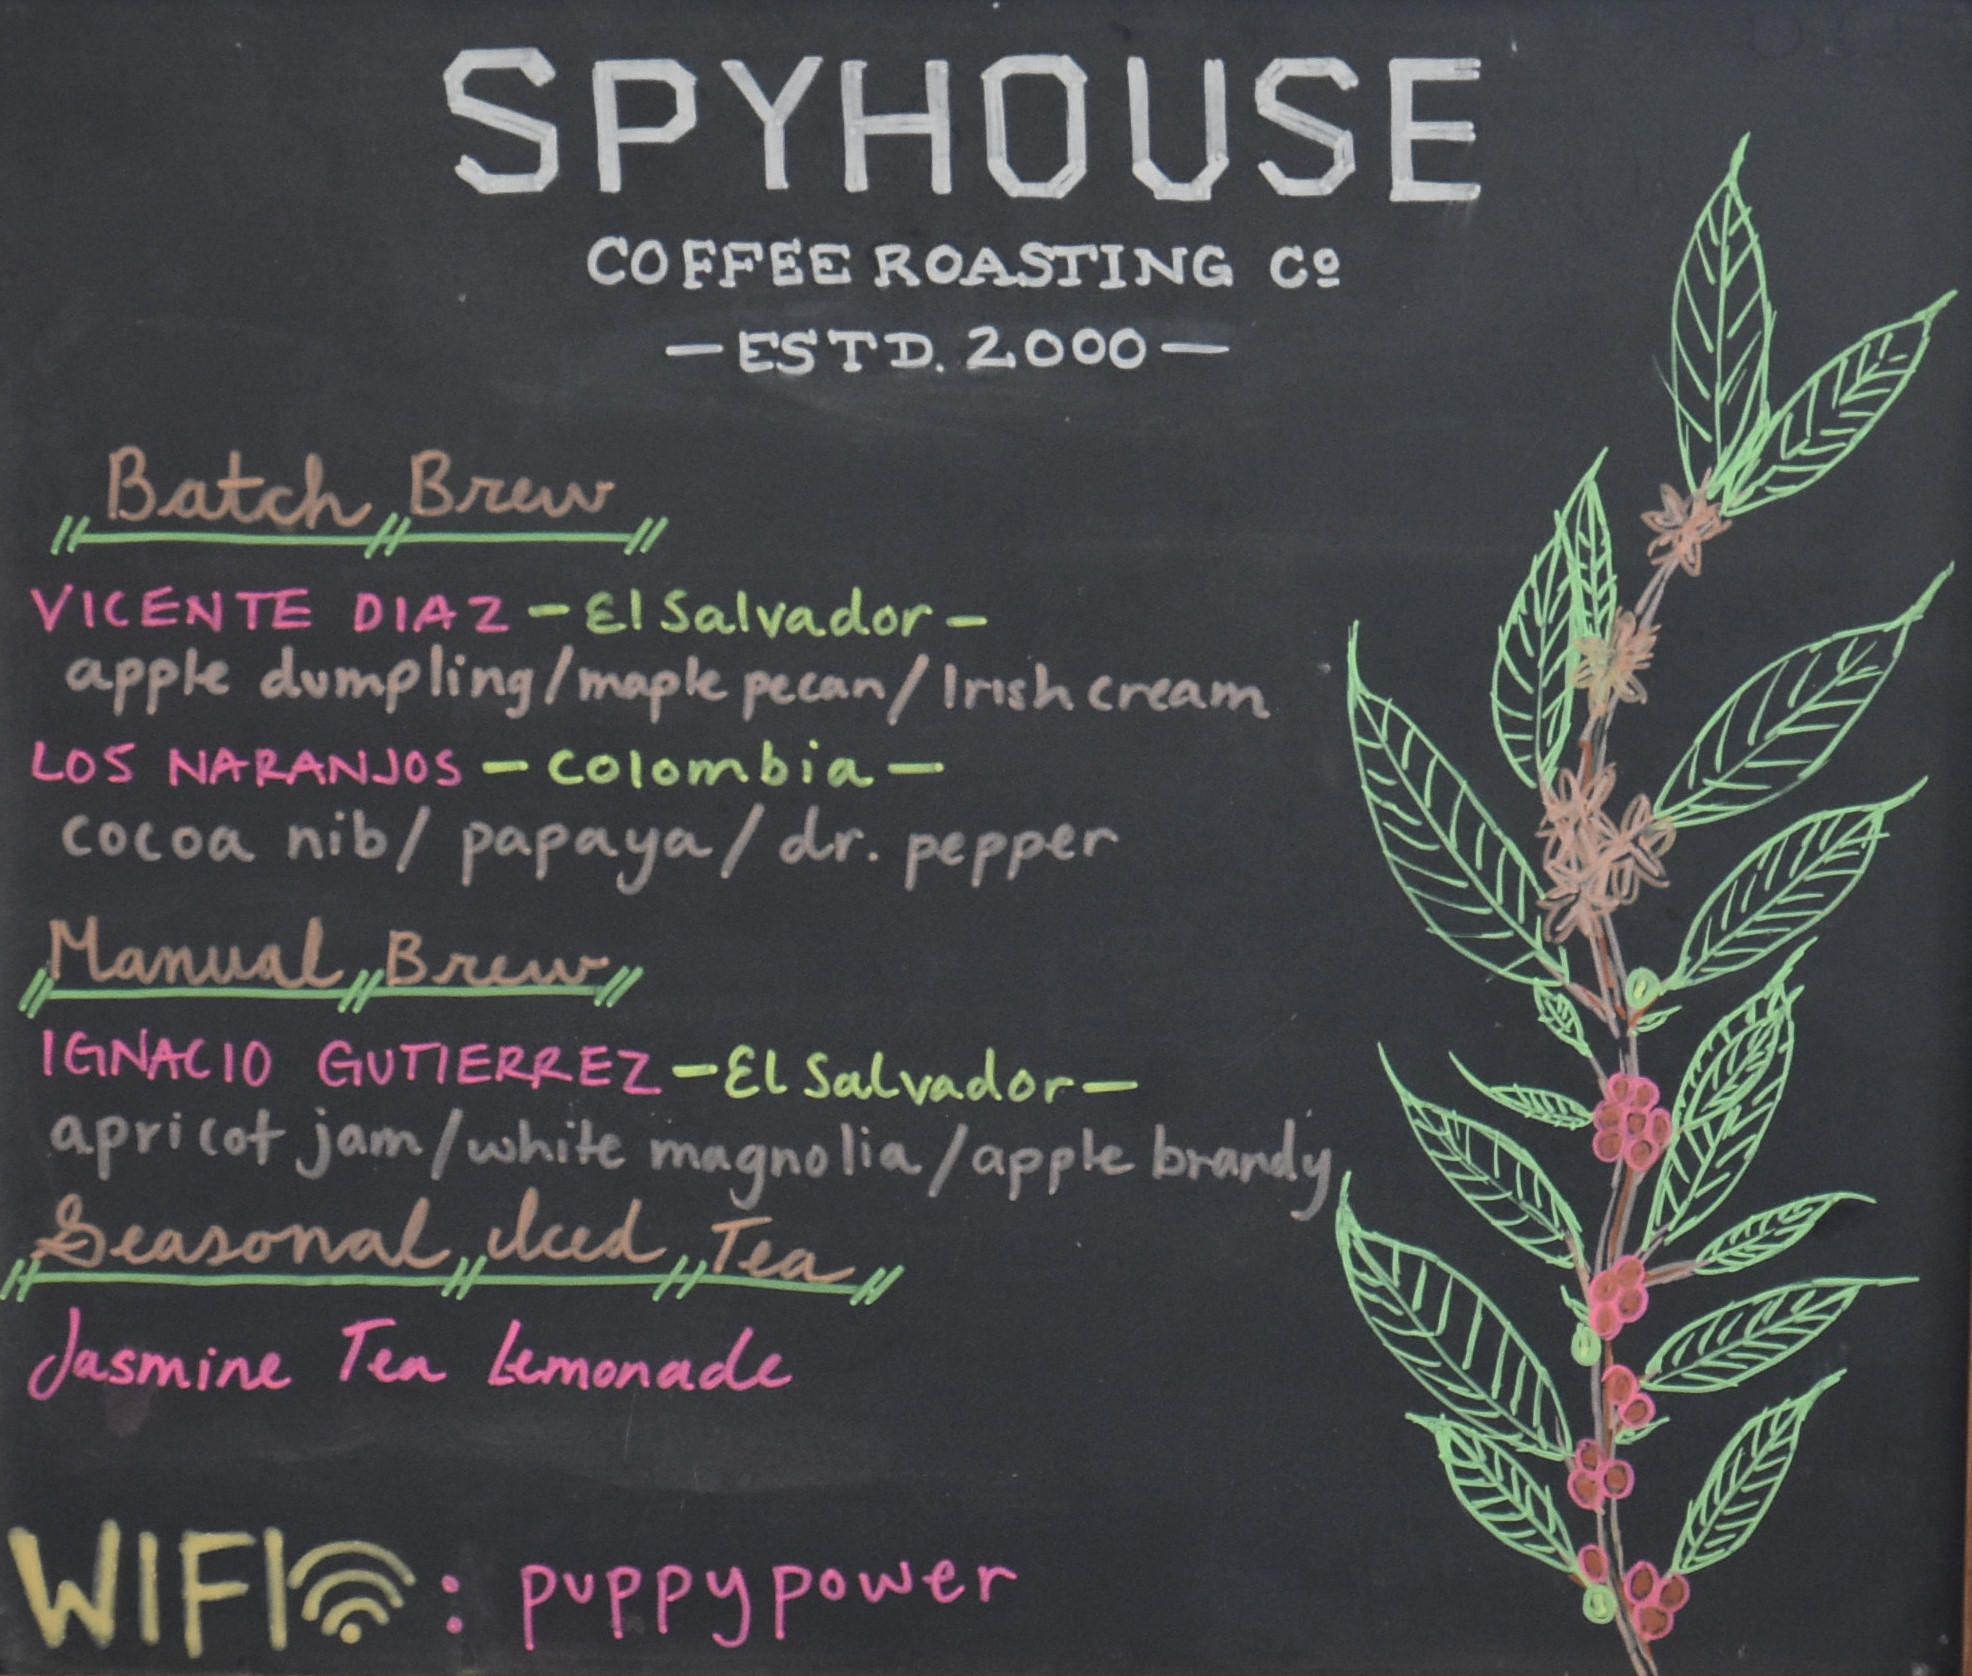 SPYHOUSE
COFFEE ROASTING Cº
—ESTD. 2000—
Batch Brew
VICENTE DIAZ - El Salvador -
apple dumpling/maple pecan/Irish cream
LOS NARANJOS - Colombia -
cocoa nib/ papaya/dr. pepper
Manual Brew
IGNACIO GUTIERREZ - El Salvador -
apricot jam/white magnolia/apple brandy
Seasonal Iced Tea
Jasmine Tea Lemonade
WIFI : puppypower